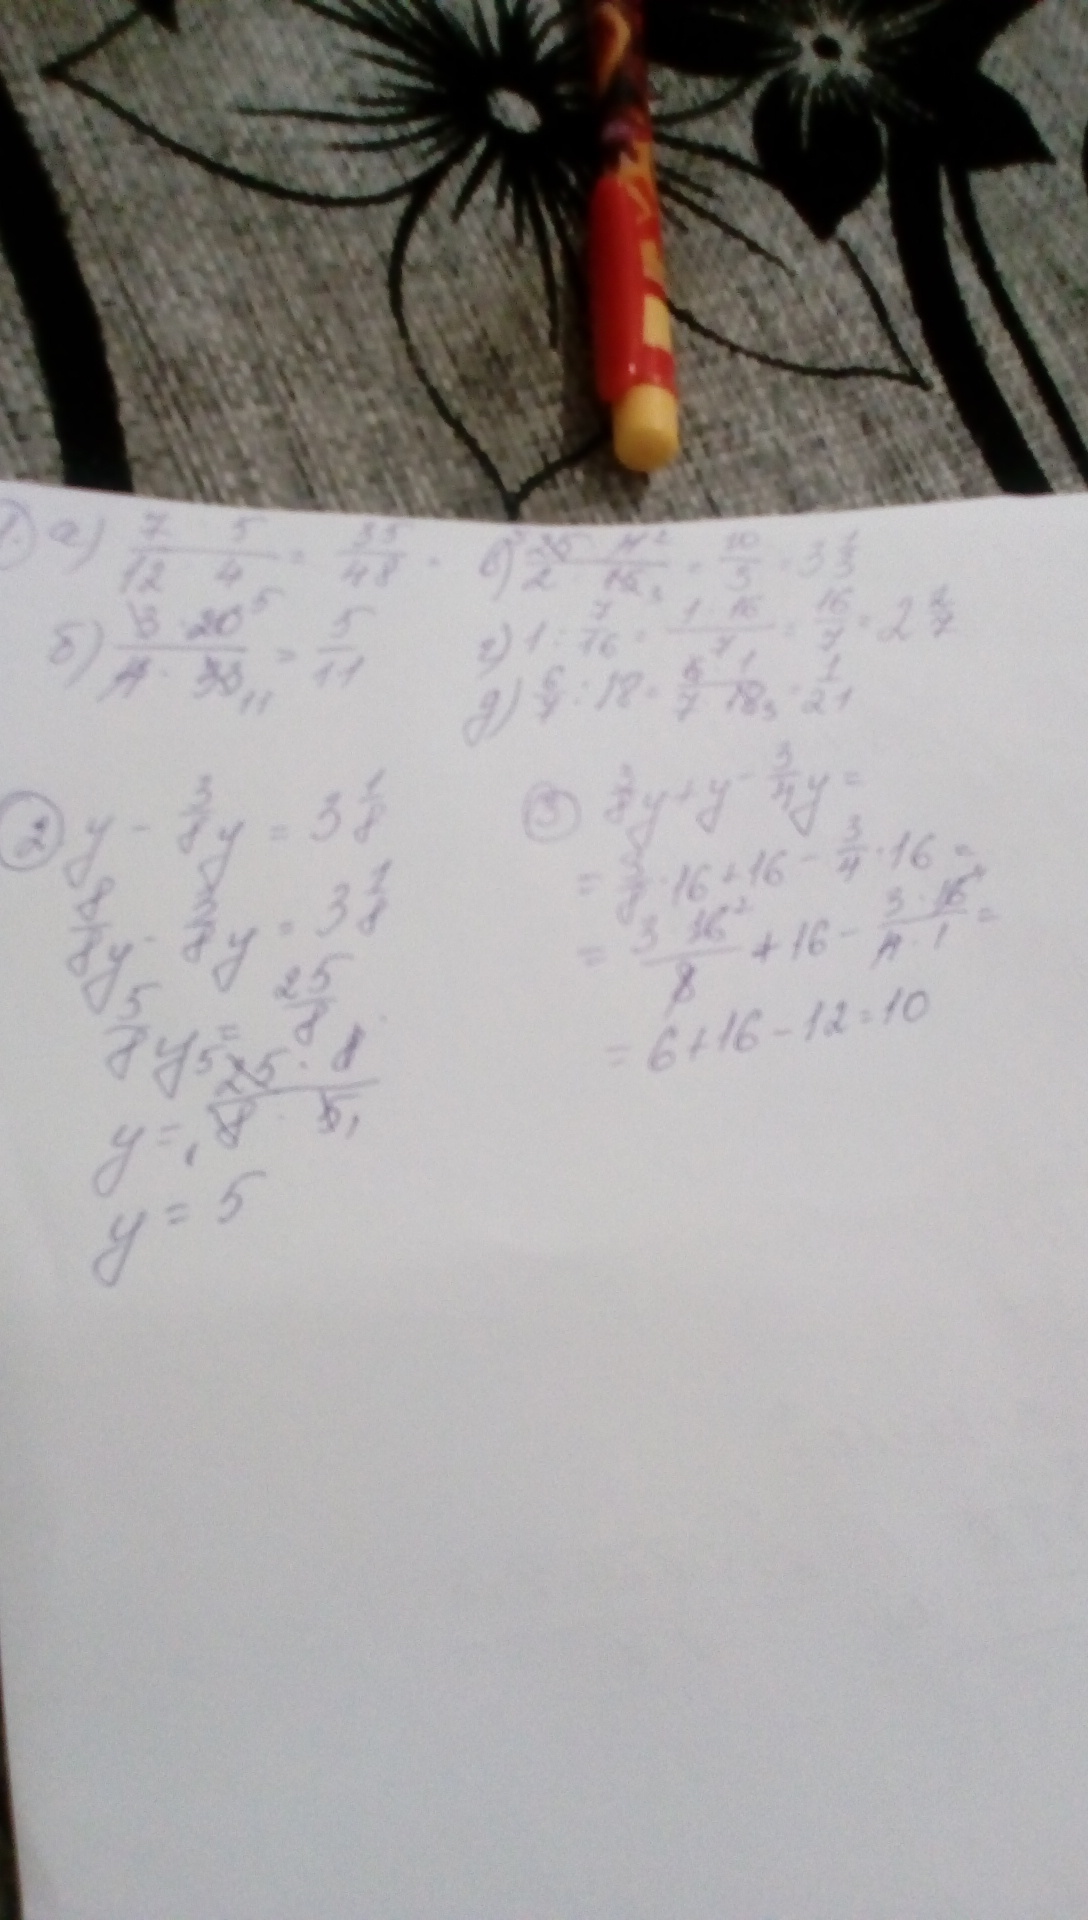 1. а) 7 · 5 / 12 · 4 = 35/48
б) 3 · 20 5 / 4 · 33 11 = 5/11
в) 5 25 · 4 2 / 2 · 15 3 = 10/3 = 3 1/3
г) 1 : 7/16 = 1 · 16 / 7 = 16/7 = 2 2/7
д) 6/7 : 18 = 6 · 1 / 7 · 18 3 = 1/21
2 y - 3/8 y = 3 1/8
8/8 y - 3/8 y = 3 1/8
5/8 y = 25/8
y = 5 25 · 8 / 1 8 · 5 1
y = 5
3 3/8 y + y - 3/4 y =
= 3/8 · 16 + 16 - 3/4 · 16 =
= 3 · 16 2 / 8 + 16 - 3 · 16 4 / 4 · 1 =
= 6 + 16 - 12 = 10